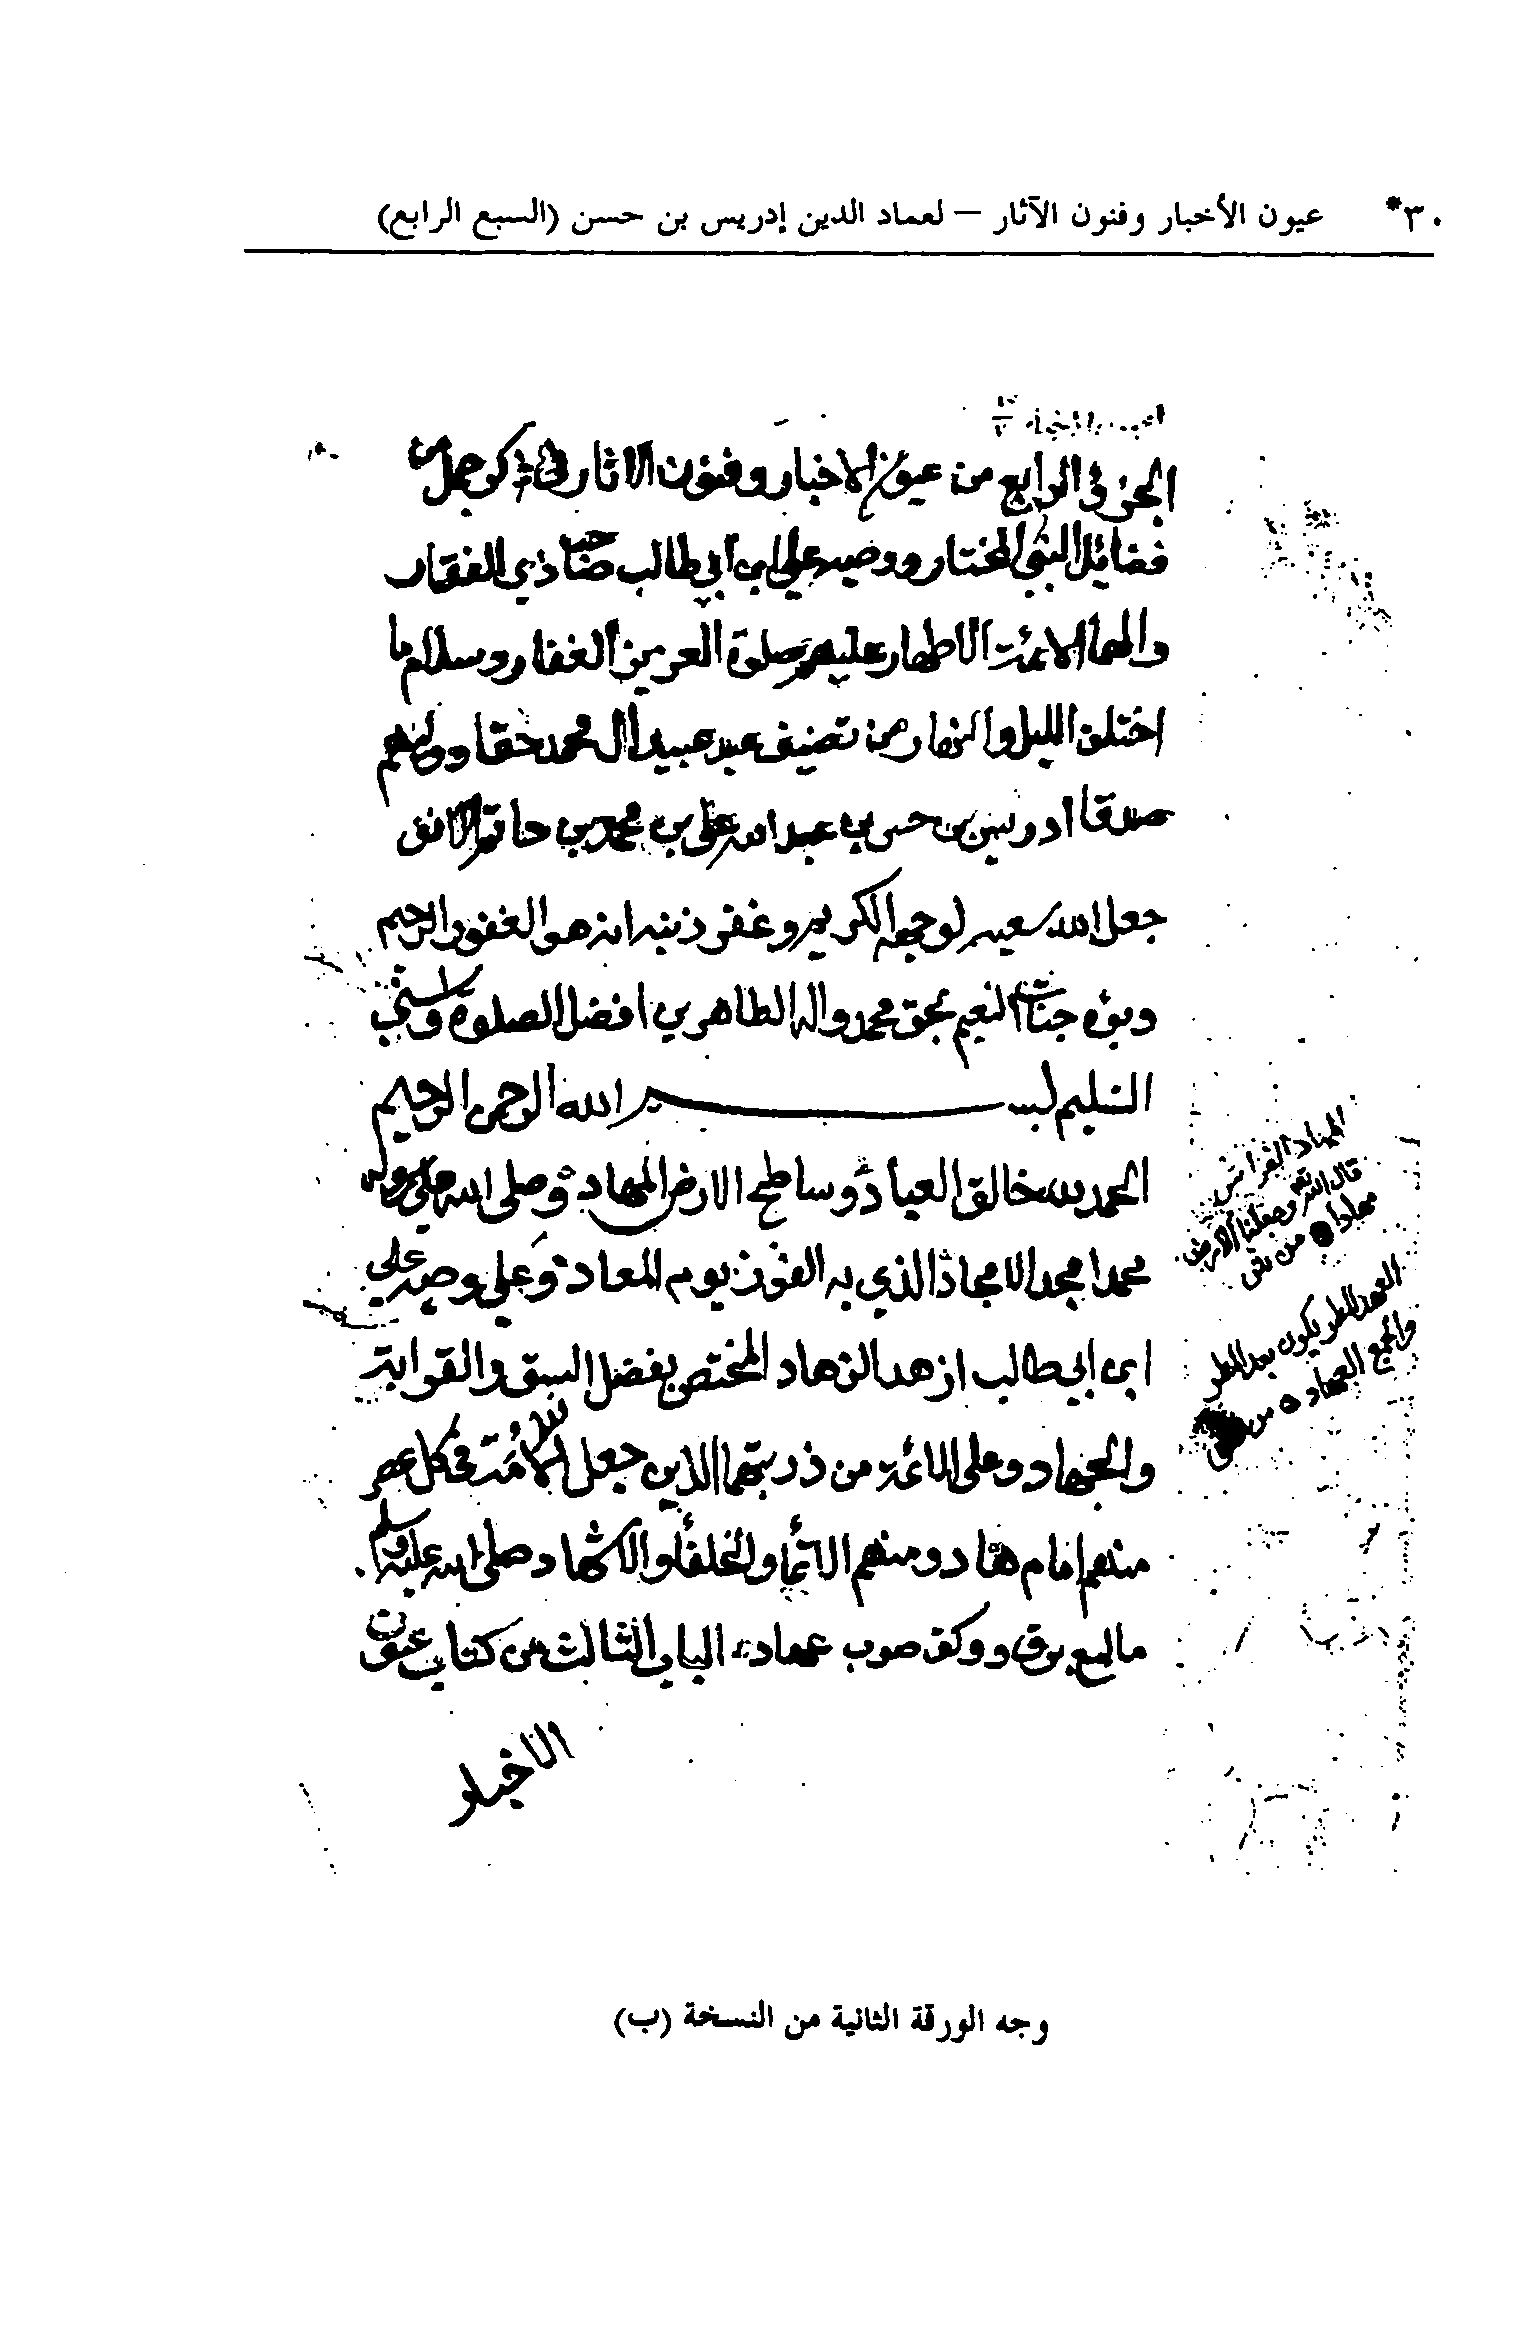 ٣٠* عيون الأخبار وفنون الآثار – لعماد الدين إدريس بن حسن (السبع الرابع)
الجزء الرابع من عيون الاخبار وفنون الاثار في ذكر جمل من
فضائل النبي المختار ووصيه علي ابن ابي طالب صاحب ذي الفقار
والهما الائمت الاطهار عليهم صلوة العزيز الغفار وسلام ما
اختلف الليل والنهار من تصنيف عبد عبيد ال محمد حقا ووليهم
صدقا ادريس بن حسن بن عبد الله علي بن محمد بن حاتم الانف
جعل الله سعيه لوجهه الكريم وغفر ذنبه انه هو الغفور الرحيم
وبوه جنات النعيم بحق محمد واله الطاهرين افضل الصلوة واسنى
التسليم بسم الله الرحمن الرحيم
الحمد لله خالق العباد وساطح الارض المهاد وصلى الله على رسوله
محمد امجد الامجاد الذي به الفوز يوم المعاد وعلى وصيه علي
ابن ابي طالب ازهد الزهاد المختص بفضل السبق والقرابة
والجهاد وعلى الائمة من ذريتهما الذين جعل الله للامت في كل عصر
منهم امام هاد ومنهم الائما والخلفا والاشهاد صلى الله عليه وسلم
ما لمع برق ووكف صوب عهاد الباب الثالث من كتاب عيون
الاخبار
المهاد الفراش
قال الله تع وجعلنا الارض
مهادا من
العهد المطر يكون بعد المطر
والجمع العهاد من
وجه الورقة الثانية من النسخة (ب)